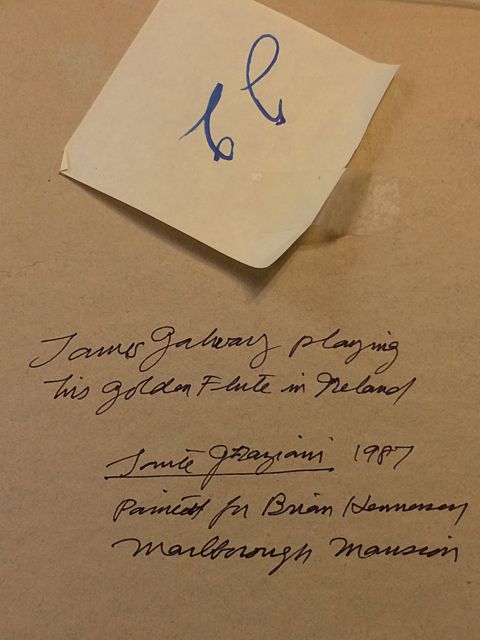 James Galway playing
his golden Flute in Ireland
Sante Graziani 1987
Painted for Brian Hennessy
Marlborough Mansion